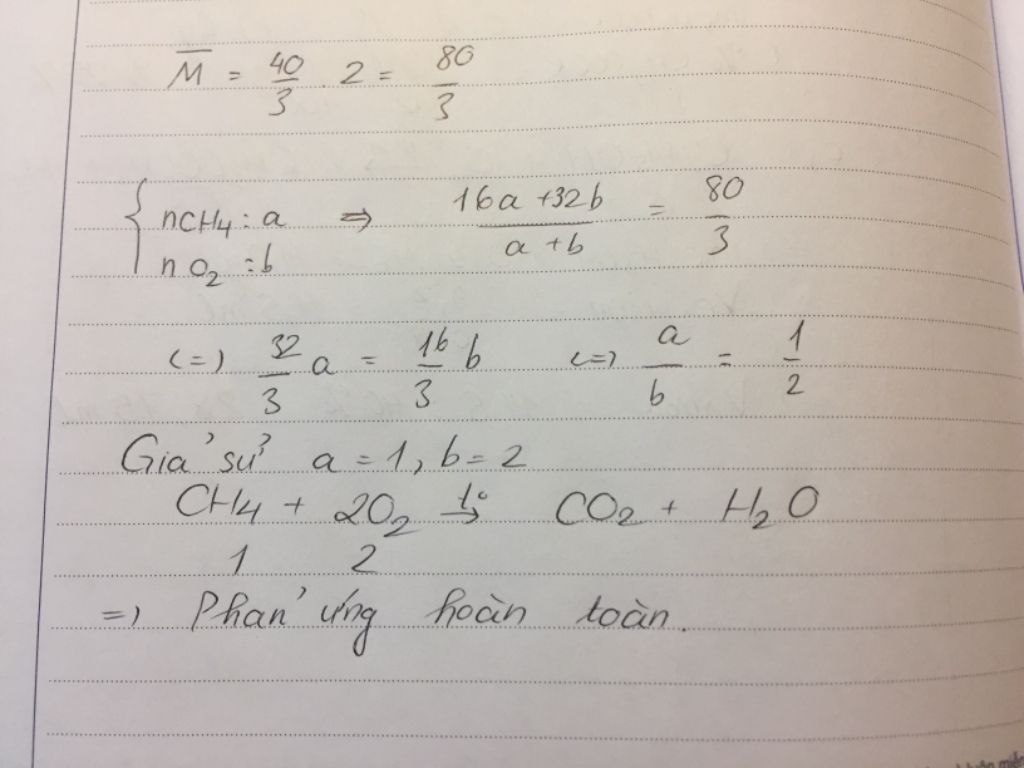 M̅ = 40/3 . 2 = 80/3
{ nCH₄ : a ⇒ (16a + 32b)/(a + b) = 80/3
nO₂ : b
(=) 32/3 a = 16/3 b (=) a/b = 1/2
Giả sử a = 1, b = 2
CH₄ + 2O₂ →t° CO₂ + H₂O
1 2
=) Phản ứng hoàn toàn.